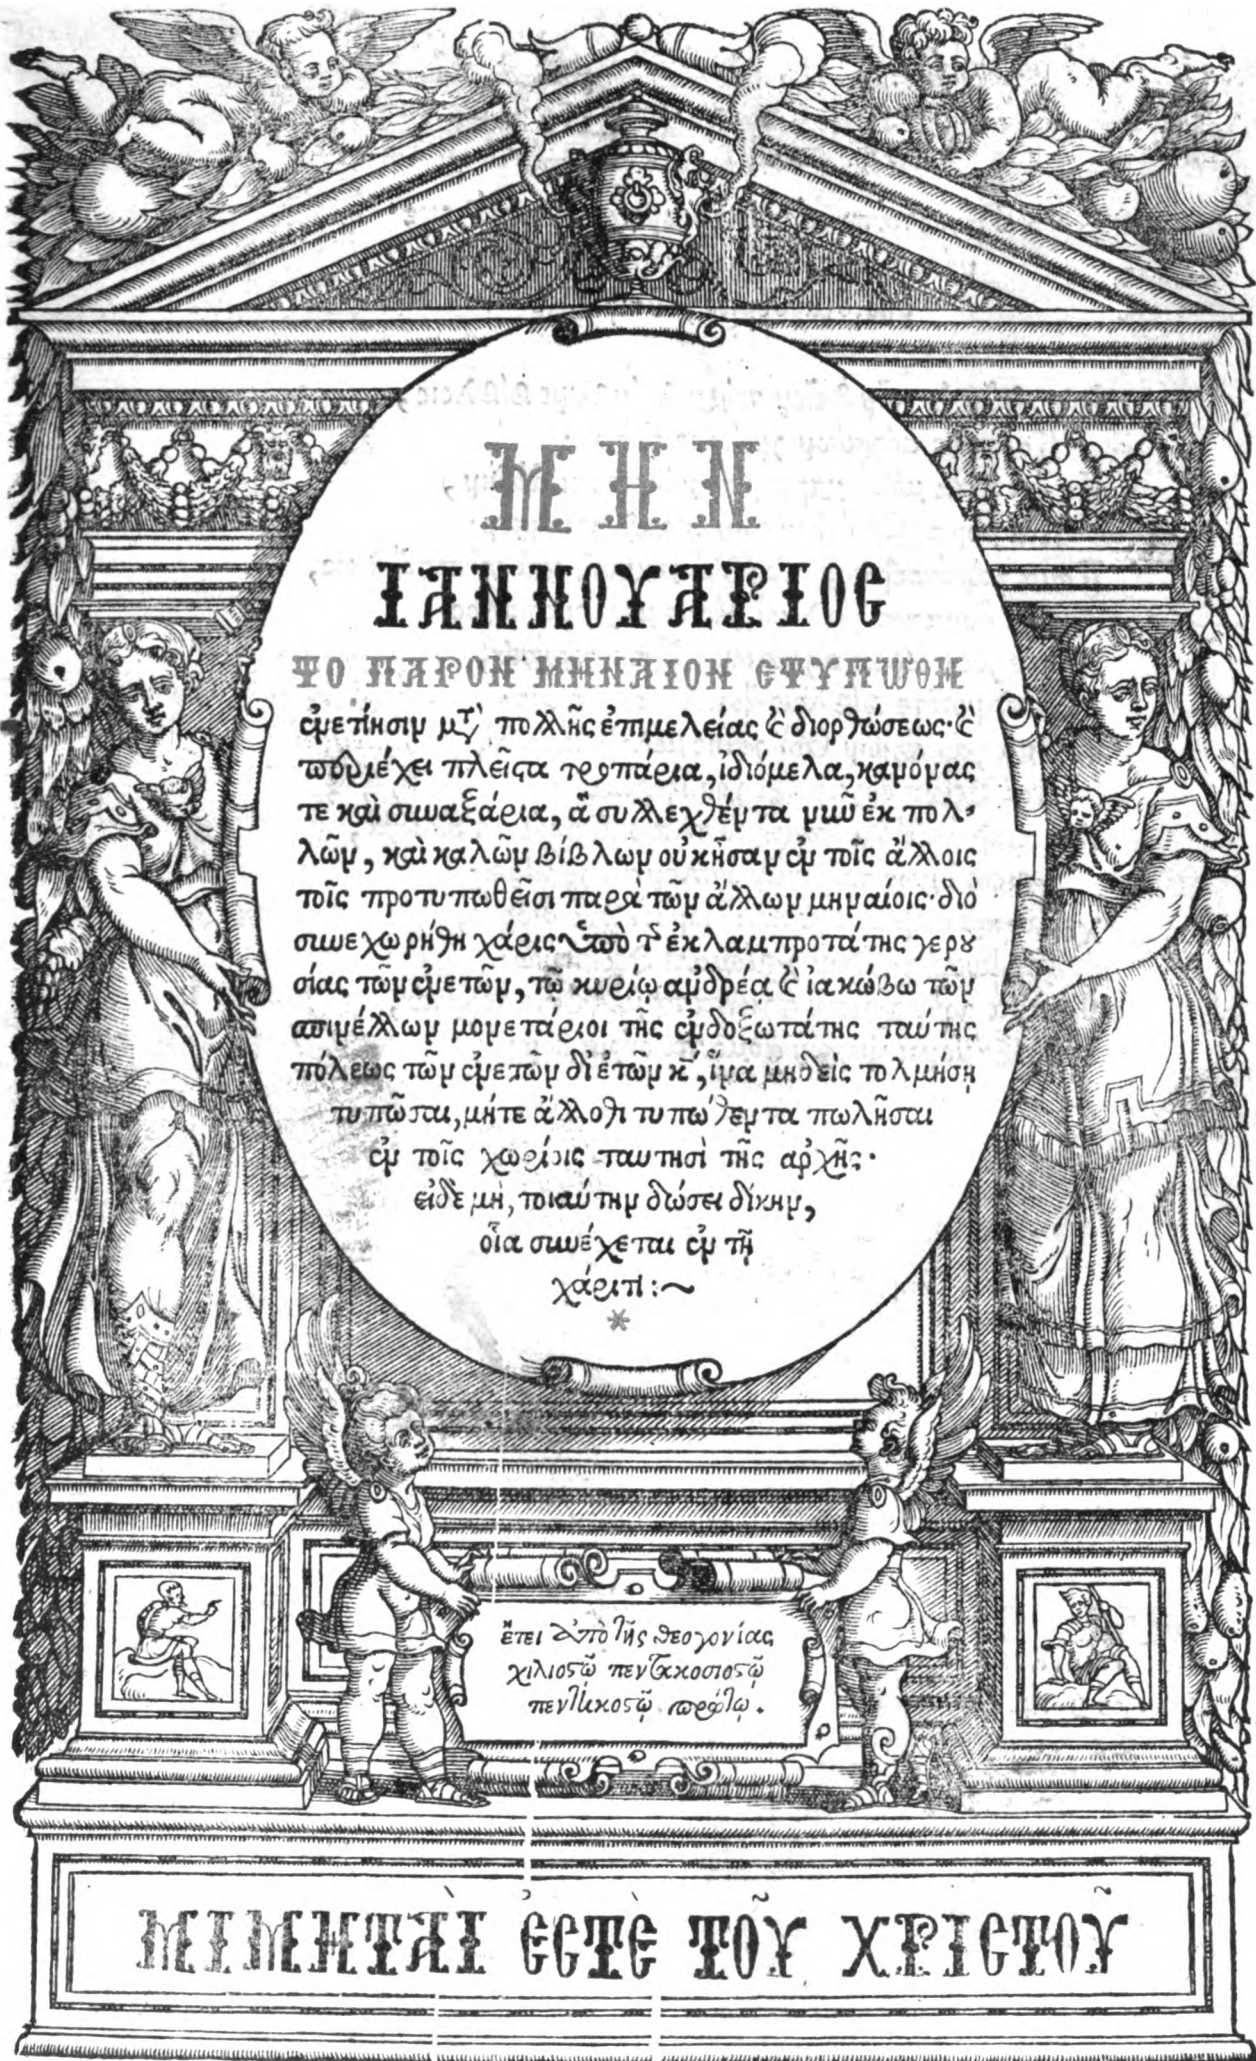 ΜΗΝ
ΙΑΝΝΟΥΑΡΙΟΣ
ΤΟ ΠΑΡΟΝ ΜΗΝΑΙΟΝ ΕΤΥΠΩΘΗ
ἐνετίησιν μετὰ πολλῆς ἐπιμελείας ϗ διορθώσεως· ϗ
περιέχει πλεῖστα τροπάρια, ἰδιόμελα, κανόνας
τε καὶ συναξάρια, ἃ συλλεχθέντα νῦν ἐκ πολ-
λῶν, καὶ καλῶν βίβλων οὐκ ἦσαν ἐν τοῖς ἄλλοις
τοῖς προτυπωθεῖσι παρὰ τῶν ἄλλων μηναίοις· διὸ
συνεχωρήθη χάρις ὑπὸ τ ἐκλαμπροτάτης γερου
σίας τῶν ἐνετῶν, τῷ κυρίῳ ἀνδρέᾳ ϗ ἰακώβω τῶν
σπινέλλων μονετάριοι τῆς ἐνδοξωτάτης ταύτης
πόλεως τῶν ἐνετῶν δι ἐτῶν κ, ἵνα μηδεὶς τολμήσῃ
τυπῶσαι, μήτε ἄλλοθι τυπωθεντα πωλῆσαι
ἐν τοῖς χωρίοις ταυτησὶ τῆς ἀρχῆς·
εἰδὲ μὴ, τοιαύτην δώσει δίκην,
οἷα συνέχεται ἐν τῇ
χάριτι:~
*
ἔτει ἀπὸ τῆς θεογονίας
χιλιοστῷ πεντακοσιοστῷ
πεντηκοστῷ πρώτῳ.
ΜΙΜΗΤΑῚ ἘΣΤῈ ΤΟῦ ΧΡΙΣΤΟῦ